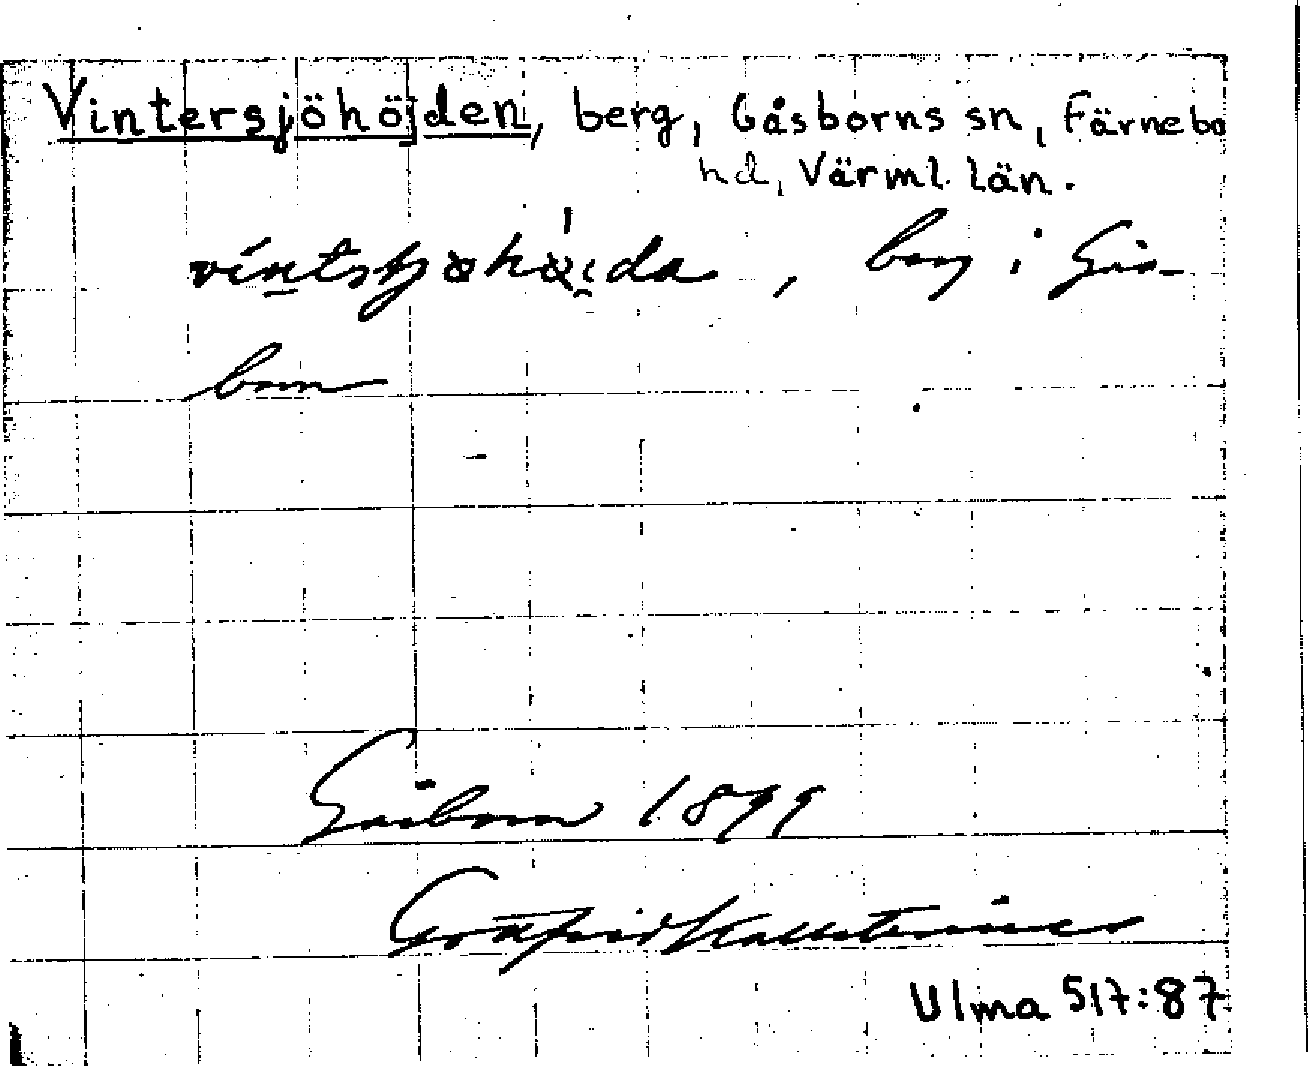 Vintersjöhöjden, berg, Gåsborns sn, Färnebo
hd, Värml. län.
, berg i Gås-
born
Gåsborn 1899
Gottfrid Kallstenius
Ulma 517:87